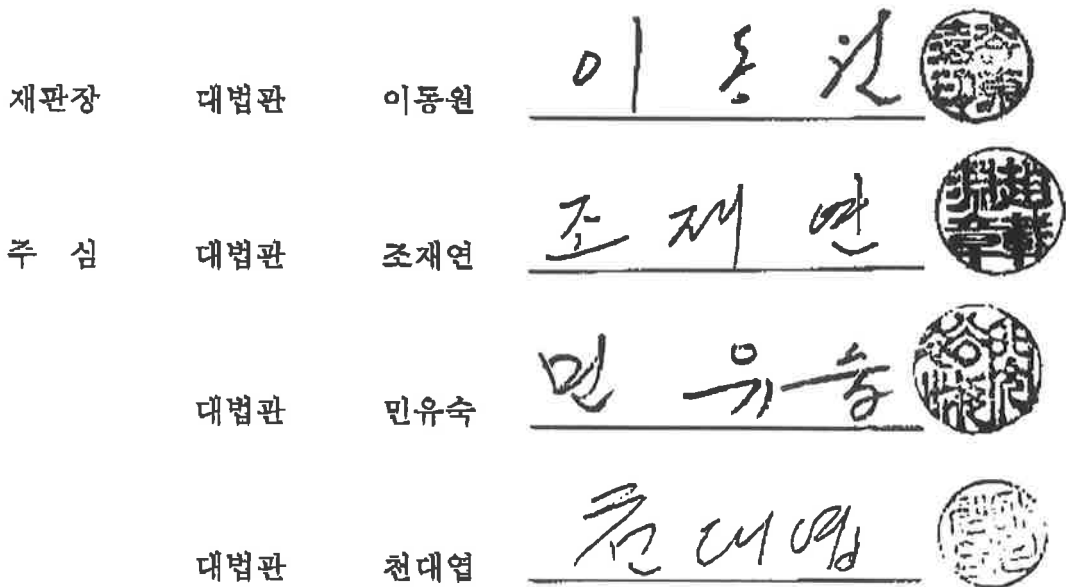 재판장 대법관 이동원 이동원
주 심 대법관 조재연 조재연
대법관 민유숙 민유숙
대법관 천대엽 천대엽